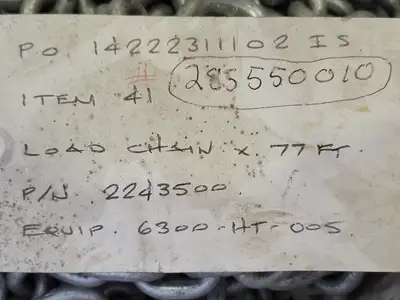 P.O. 14222311102 IS
# 285550010
ITEM 41
LOAD CHAIN x 77 FT.
P/N. 2243500.
EQUIP. 6300-HT-005.